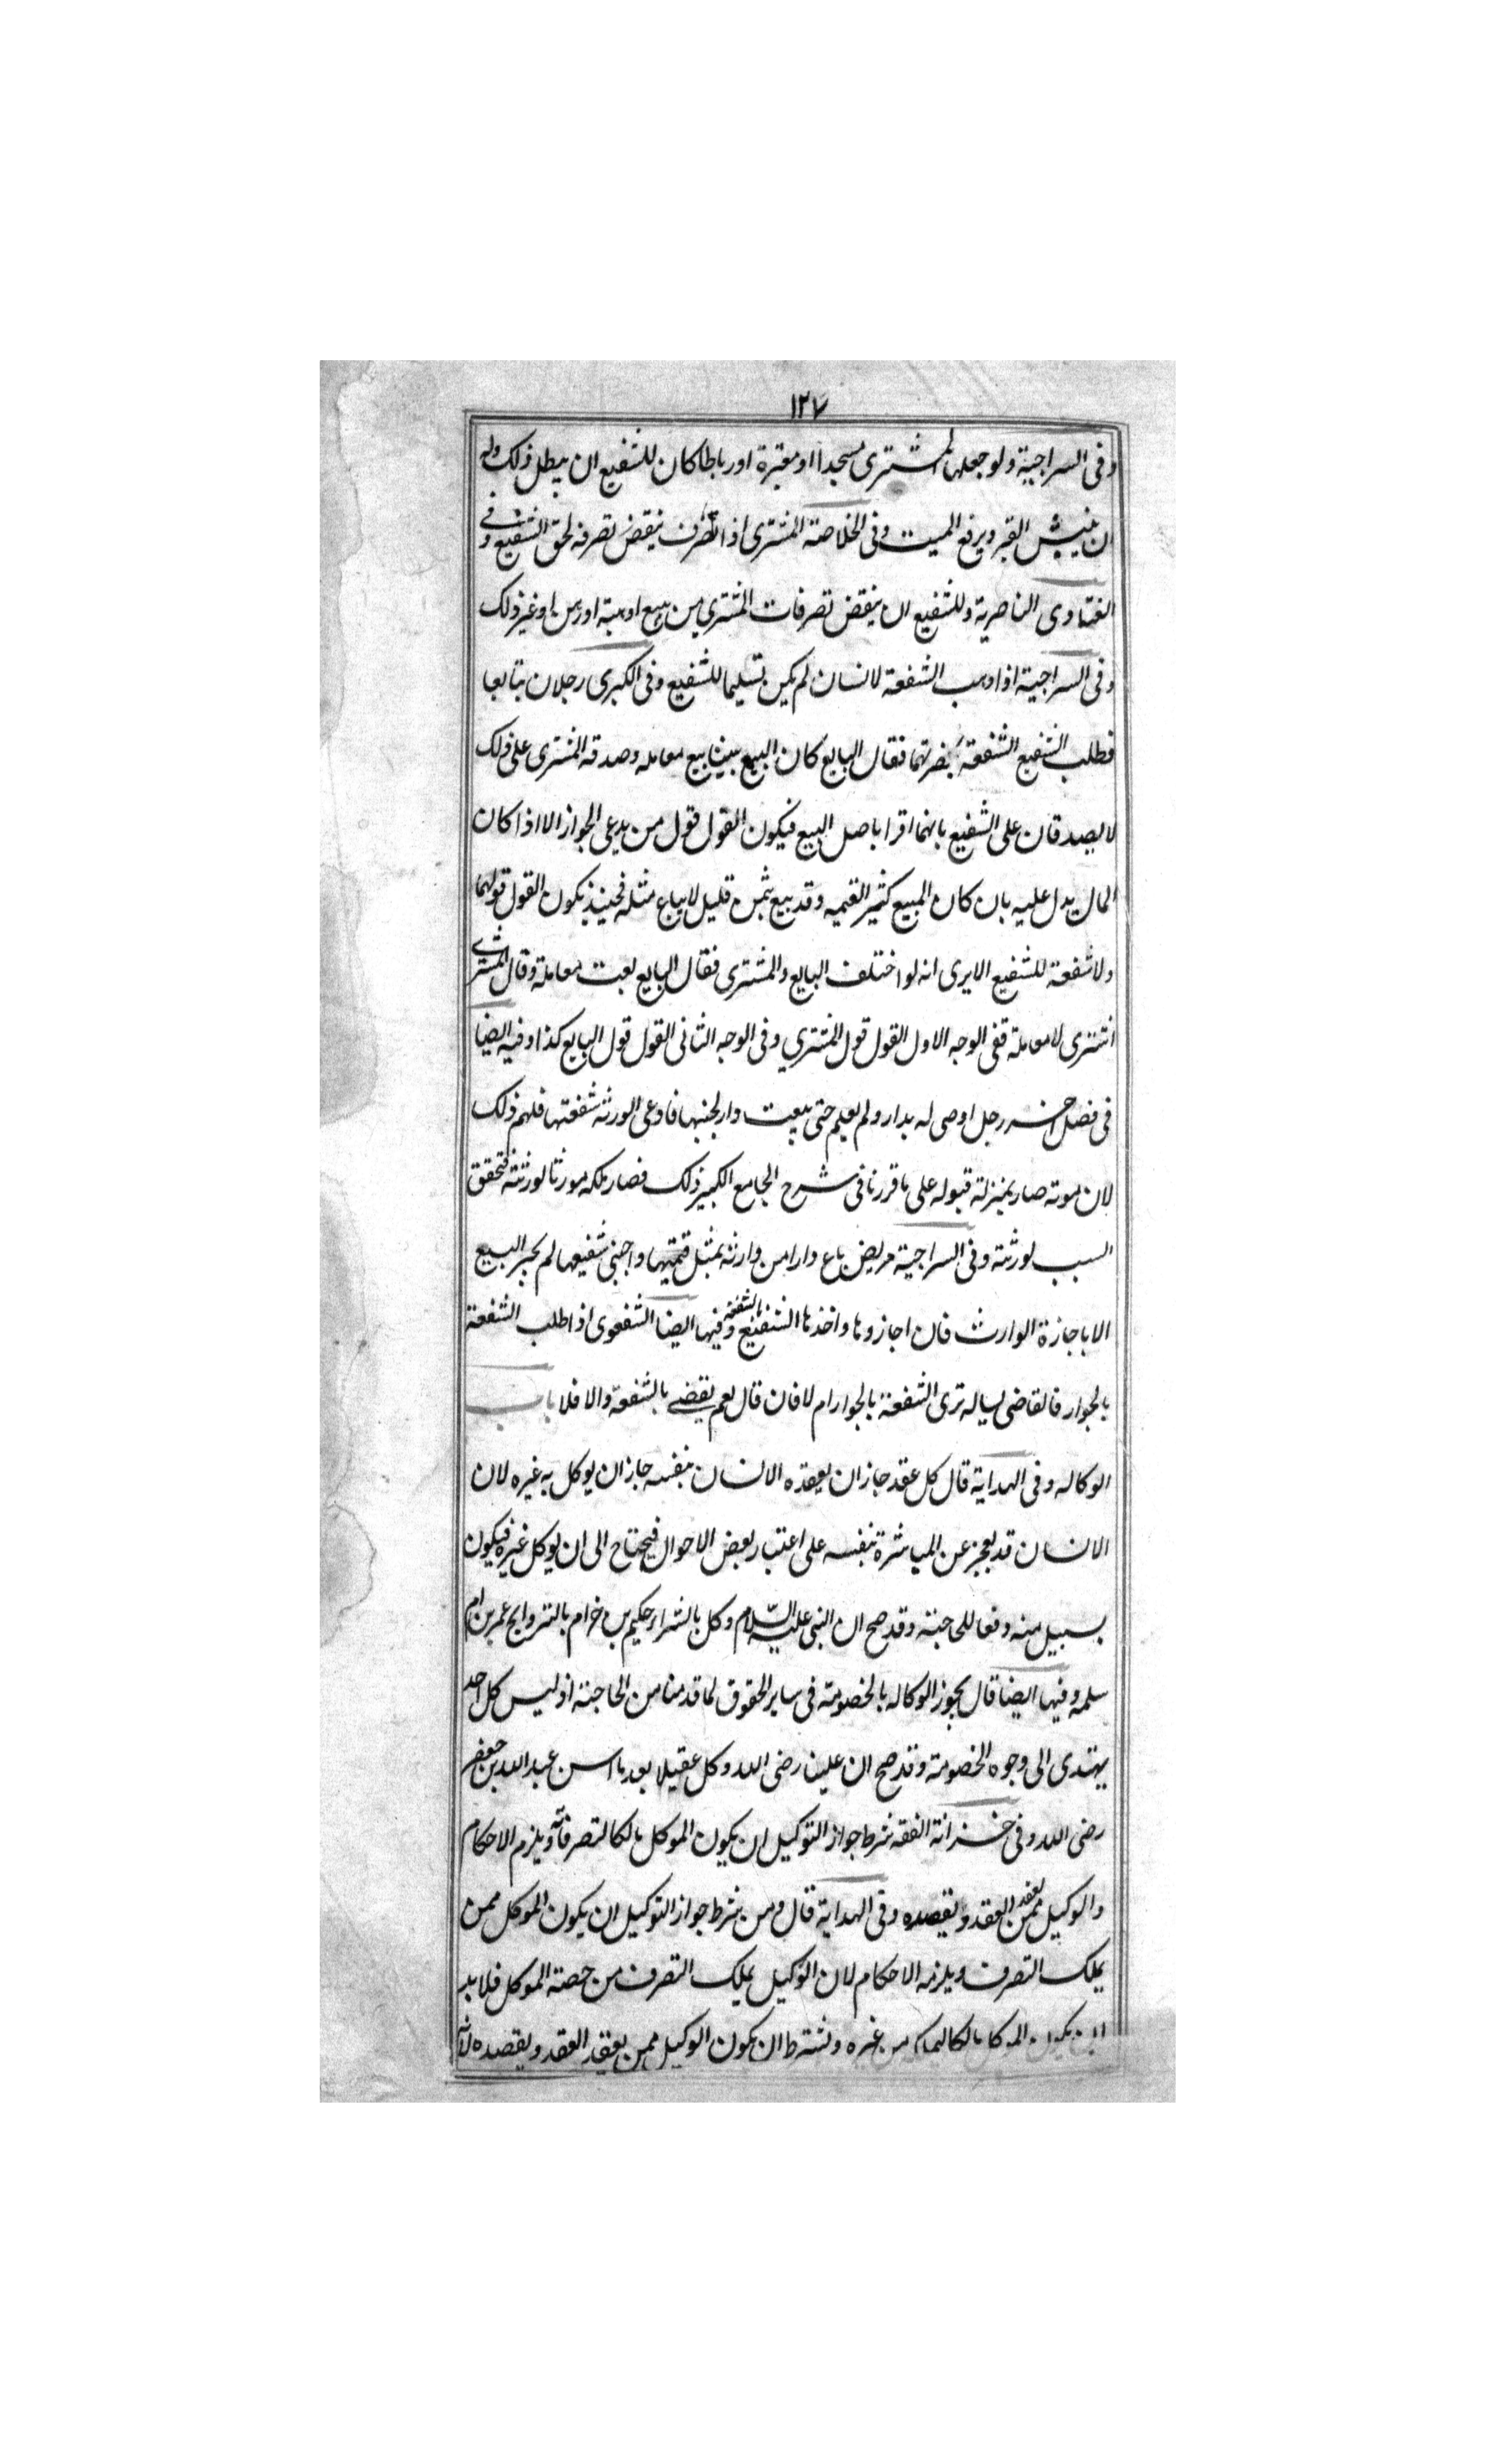 ١٢٧
وفى السراجية ولو جعلها المشترى مسجدا او مقبرة او رباطا كان للشفيع ان يبطل ذلك وله
ان ينبش القبر ويرفع الميت وفى الخلاصة المشترى اذا تصرف ينقض تصرفه لحق الشفيع وفي
الفتاوى الناصرية وللشفيع ان ينقض تصرفات المشترى من بيع او هبة او رهن او غير ذلك
وفى السراجية اذا وهب الشفعة لانسان لم يكن تسليما للشفيع وفى الكبرى رجلان تبايعا
فطلب الشفيع الشفعة بحضرتهما فقال البايع كان البيع بيننا بيع معامله وصدقه المشترى على ذلك
لا يصدقان على الشفيع بانهما اقرا باصل البيع فيكون القول قول من يدعى الجواز الا اذا كان
الحال يدل عليه بان كان المبيع كثير القيمه وقد بيع بثمن قليل لا يباع مثله فحينئذ يكون القول قولهما
ولا شفعة للشفيع الا يرى انه لو اختلف البايع والمشترى فقال البايع بعت معاملة وقال المشترے
اشترى لا معاملة ففى الوجه الاول القول قول المشتري وفى الوجه الثانى القول قول البايع كذا وفيه ايضا
فى فصل اخر رجل اوصى له بدار ولم يعلم حتى بيعت دار بجنبها فادعى الورثة شفعتها فلهم ذلك
لان موته صار بمنزلة قبوله على ما قررنا فى شرح الجامع الكبير ذلك فصار ملكه موروثا لورثته فتحقق
السبب لورثته وفى السراجية مريض باع دارا من وارثه بمثل قيمتها واجنبى شفيعها لم يجز البيع
الا باجازة الوارث فان اجازوها واخذها الشفيع بالشفعة وفيها ايضا الشفعوى اذا طلب الشفعة
بالجوار فالقاضى يساله ترى الشفعة بالجوار ام لا فان قال نعم يقضے بالشفعة والا فلا باب
الوكاله وفى الهداية قال كل عقد جاز ان يعقده الانسان بنفسه جاز ان يوكل به غيره لان
الانسان قد يعجز عن المباشرة بنفسه على اعتبار بعض الاحوال فيحتاج الى ان يوكل غيره فيكون
بسبيل منه دفعا للحاجة وقد صح ان النبى عليه السلام وكل بالشراء حكيم بن خرام بالتزوايج عمر بن ام
سلمه وفيها ايضا قال يجوز الوكاله بالخصومة فى ساير الحقوق لما قدمنا من الحاجة اذ ليس كل احد
يهتدى الى وجوه الخصومة وقد صح ان عليا رضى الله وكل عقيلا بعد ما اسن عبد الله بن جعفر
رضى الله وفى خزانة الفقه شرط جواز التوكيل ان يكون الموكل مالكا لتصرفاته ويلزم الاحكام
والوكيل ممن يعقد العقد ويقصده وفى الهداية قال ومن شرط جواز التوكيل ان يكون الموكل ممن
يملك التصرف ويلزمه الاحكام لان الوكيل يملك التصرف من جهة الموكل فلا بد
ان يكون الموكل مالكا ليملكه من غيره ويشترط ان يكون الوكيل ممن يعقد العقد ويقصده لانه